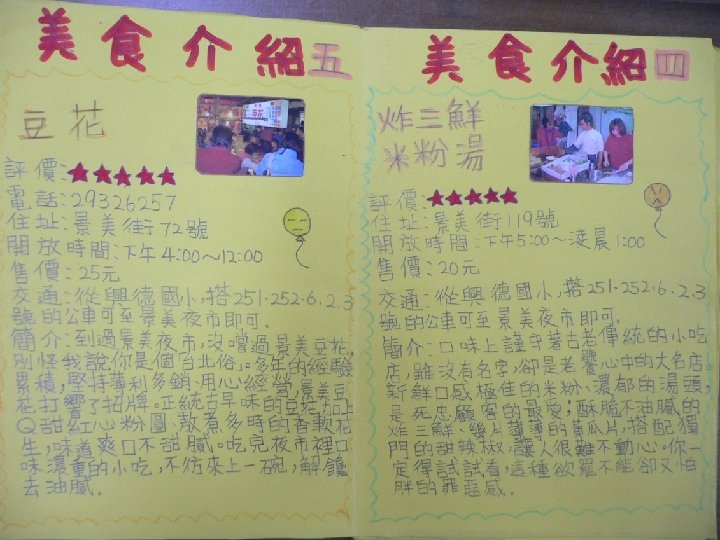 美食介紹五
豆花
評價:★★★★★
電話:29326257
住址:景美街72號
開放時間:下午4:00~12:00
售價:25元
交通:從興德國小,搭251.252.6.2.3
號的公車可至景美夜市即可.
簡介:到過景美夜市,沒嚐過景美豆花,
別怪我說你是個台北俗。多年的經驗
累積,堅持薄利多銷、用心經營,景美豆
花打響了招牌。正統古早味的豆花加上
Q甜紅心粉圓、散煮多時的香軟花
生,味道爽口不甜膩。吃完夜市裡口
味濃重的小吃,不妨來上一碗,解饞
去油膩.
美食介紹四
炸三鮮
米粉湯
評價:★★★★★
住址:景美街119號
開放時間:下午5:00~凌晨1:00
售價:20元
交通:從興德國小,搭251.252.6.2.3
號的公車可至景美夜市即可.
簡介:口味上謹守著古老傳統的小吃
店,雖沒有名字,卻是老饕心中的大名店
新鮮口感極佳的米粉、濃郁的湯頭,
是死忠顧客的最愛;酥脆不油膩的
炸三鮮、幾片薄薄的黃瓜片,搭配獨
門的甜辣椒,讓人很難不動心。你一
定得試試看,這種欲罷不能卻又怕
胖的罪惡感.